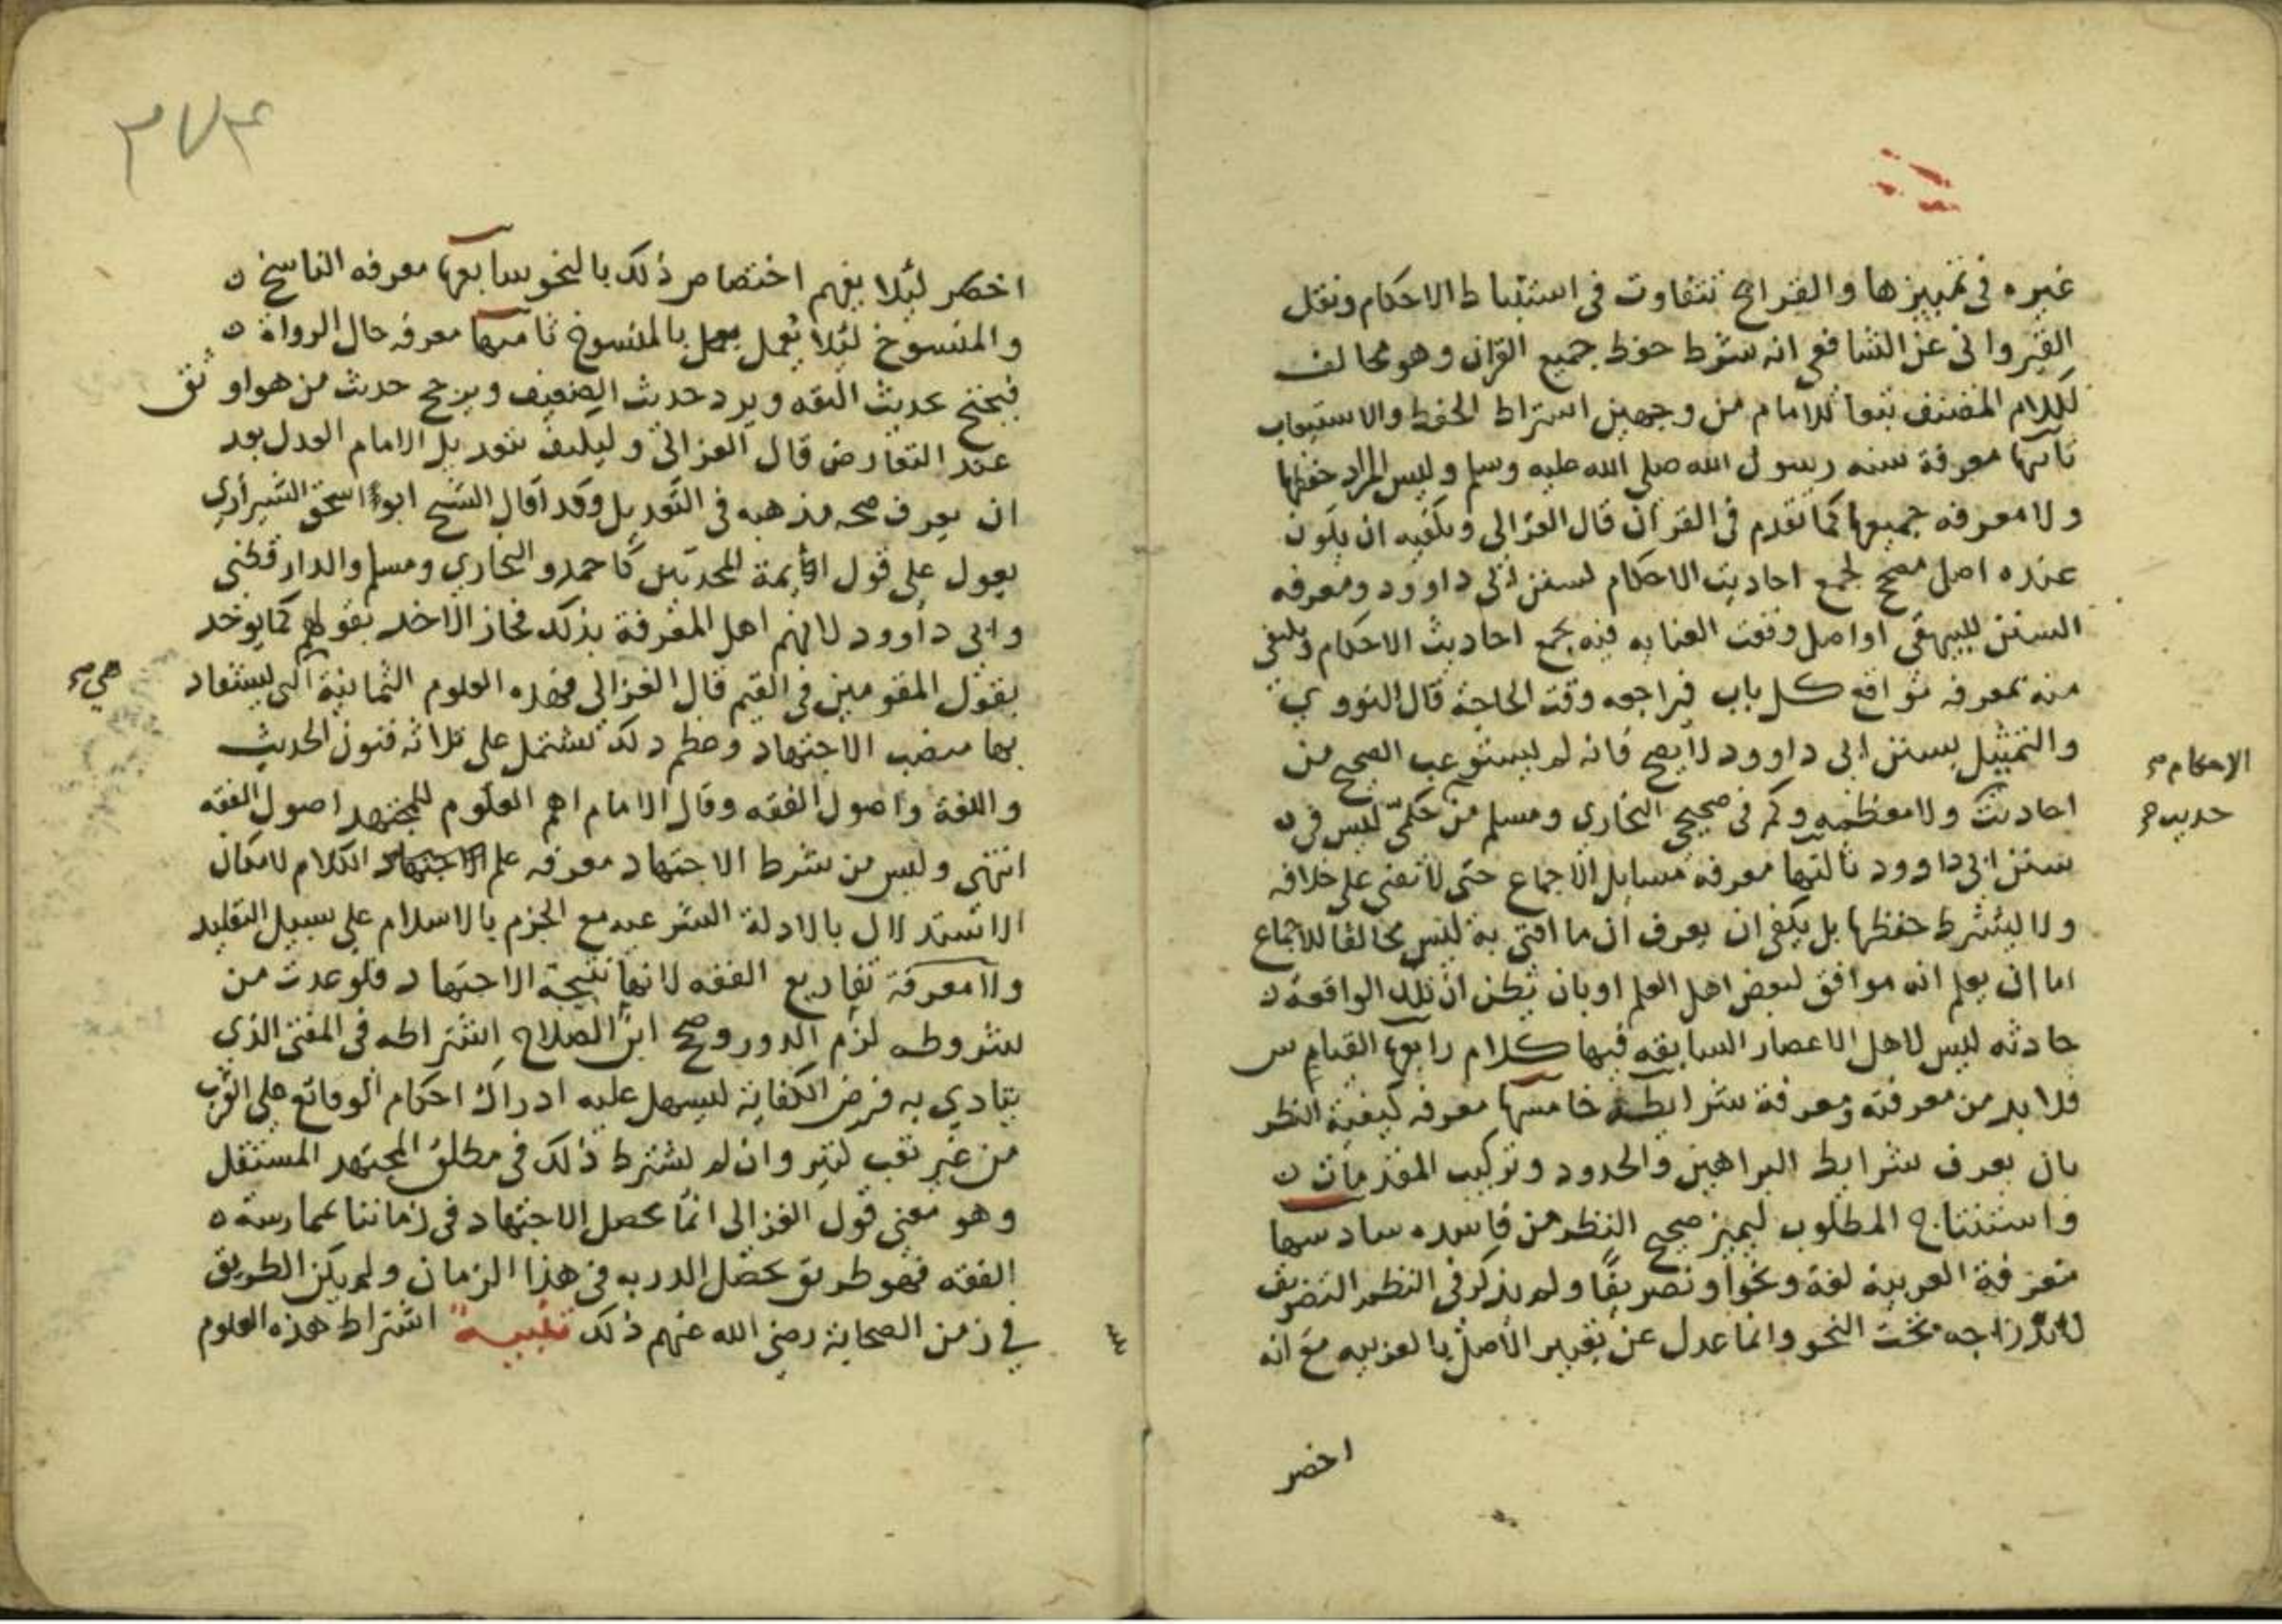 غيره في تمييزها والقرائح تتفاوت في استنباط الاحكام ونقل
القيرواني عن الشافعي انه شرط حفظ جميع القران وهو مخالف
لكلام المصنف تبعا للامام من وجهين اشتراط الحفظ والاستيعاب
ثانيها معرفة سنه رسول الله صلى الله عليه وسلم وليس المراد حفظها
ولا معرفه جميعها كما تقدم في القرآن قال الغزالي ويكفيه ان يكون
عنده اصل مصحح لجمع احاديث الاحكام لسنن ابي داوود ومعرفه
السنن للبيهقي او اصل وقعت العنايه فيه بجمع احاديث الاحكام ويكفي
منه بمعرفه مواقع كل باب فيراجعه وقت الحاجة قال النووي
والتمثيل بسنن ابي داوود لا يصح فانه لم يستوعب الصحيح من
الاحكام صح
احاديث ولا معظمه وكم في صحيحي البخاري ومسلم من حكمي ليس في
حديث صح
سنن ابي داوود ثالثها معرفه مسايل الاجماع حتى لا يفتي على خلافه
ولا يشترط حفظها بل يكفي ان يعرف ان ما افتى به ليس مخالفا للاجماع
اما ان يعلم انه موافق لبعض اهل العلم او بان يظن ان تلك الواقعة
حادثه ليس لاهل الاعصار السابقه فيها كلام رابعها القياس
فلا بد من معرفته ومعرفة شرايطه خامسها معرفه كيفية النظر
بان يعرف شرايط البراهين والحدود وتركيب المقدمات
واستنتاج المطلوب ليميز صحيح النظر من فاسده سادسها
معرفة العربية لغة ونحوا وتصريفا ولم يذكر في النظم التصريف
لاندراجه تحت النحو وانما عدل عن تعبير الاصل بالعربيه مع انه
اخصر
٢٧٤
اخصر ليلا يفهم اختصاص ذلك بالنحو سابعها معرفه الناسخ
والمنسوخ ليلا يعمل بالمنسوخ ثامنها معرفه حال الرواة
فيحتج بحديث الثقه ويرد حديث الضعيف ويرجح حديث من هو اوثق
عند التعارض قال الغزالي وليكف تعديل الامام العدل بعد
ان يعرف صحه مذهبه في التعديل وقد قال الشيخ ابو اسحق الشيرازي
يعول على قول ايمة المحدثين كاحمد والبخاري ومسلم والدارقطني
وابي داوود لانهم اهل المعرفة بذلك فجاز الاخذ بقولهم كما يوخذ
بقول المقومين في القيم قال الغزالي فهذه العلوم الثمانية التي يستفاد
هي صح
بها منصب الاجتهاد ومعظم ذلك تشتمل على ثلاثه فنون الحديث
واللغة واصول الفقه وقال الامام اهم العلوم للمجتهد اصول الفقه
انتهي وليس من شرط الاجتهاد معرفه علم الاجتهاد الكلام لامكان
الاستدلال بالادلة الشرعيه مع الجزم بالاسلام على سبيل التقليد
ولا معرفة تفاريع الفقه لانها نتيجة الاجتهاد فلو عدت من
شروطه لزم الدور وصحح ابن الصلاح اشتراطه في المفتى الذي
يتادي به فرض الكفاية ليسهل عليه ادراك احكام الوقائع على القرب
من غير تعب كثير وان لم نشترط ذلك في مطلق المجتهد المستقل
وهو معنى قول الغزالى انما يحصل الاجتهاد في زماننا بممارسة
الفقه فهو طريق تحصل الدربه في هذا الزمان ولم يكن الطريق
في زمن الصحابة رضي الله عنهم ذلك تنبيه اشتراط هذه العلوم